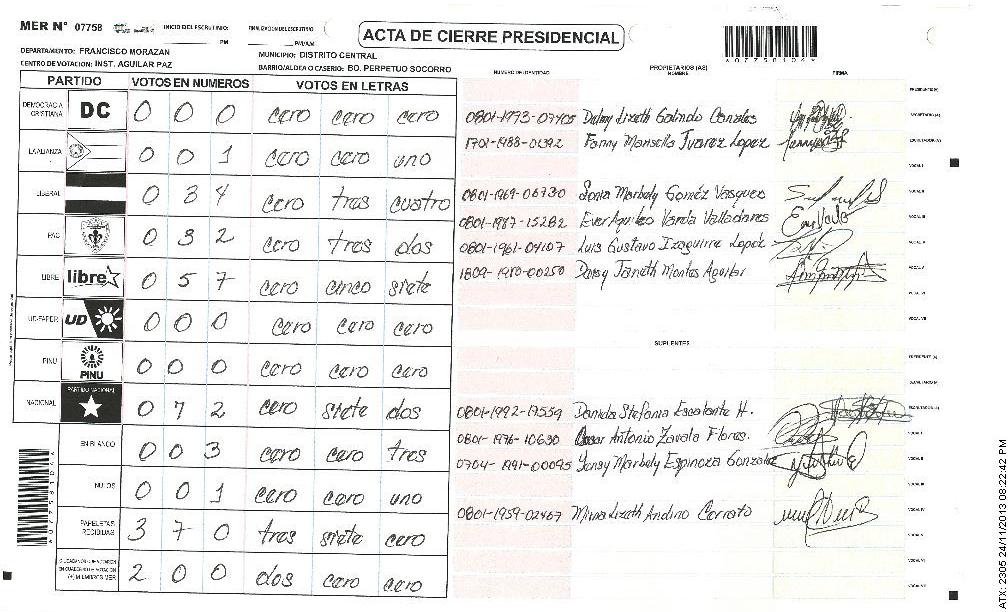 MER N° 07758 INICIO DEL ESCRUTINIO: FINALIZACION DEL ESCRUTINIO
PM PM/AM
ACTA DE CIERRE PRESIDENCIAL
*07758106*
DEPARTAMENTO: FRANCISCO MORAZAN MUNICIPIO: DISTRITO CENTRAL
CENTRO DE VOTACION: INST. AGUILAR PAZ BARRIO/ALDEA O CASERIO: BO. PERPETUO SOCORRO
PARTIDO VOTOS EN NUMEROS VOTOS EN LETRAS
DEMOCRACIA CRISTIANA DC 0 0 0 cero cero cero
LA ALIANZA 0 0 1 cero cero uno
LIBERAL 0 3 4 cero tres cuatro
PAC 0 3 2 cero tres dos
LIBRE libre 0 5 7 cero cinco siete
UD-FAPER UD 0 0 0 cero cero cero
PINU PINU 0 0 0 cero cero cero
NACIONAL PARTIDO NACIONAL 0 7 2 cero siete dos
EN BLANCO 0 0 3 cero cero tres
NULOS 0 0 1 cero cero uno
PAPELETAS RECIBIDAS 3 7 0 tres siete cero
CIUDADANOS QUE VOTARON EN CUADERNO DE VOTACION (+) MIEMBROS MER 2 0 0 dos cero cero
NUMERO DE IDENTIDAD PROPIETARIOS (AS) NOMBRE FIRMA
PRESIDENTE (A)
0801-1973-07405 Delmy Lizeth Galindo Canales SECRETARIO (A)
1701-1988-01392 Fanny Marisella Juarez Lopez ESCRUTADOR (A)
VOCAL I
0801-1969-06730 Sonia Marbely Goméz Vasquez VOCAL II
0801-1987-15282 Ever Aquileo Varela Valladares VOCAL III
0801-1961-04107 Luis Gustavo Izaguirre Lopez VOCAL IV
1809-1980-00250 Daisy Janeth Montes Aguilar VOCAL V
VOCAL VI
VOCAL VII
SUPLENTES
PRESIDENTE (A)
SECRETARIO (A)
0801-1992-17559 Daniela Stefania Escalante H. ESCRUTADOR (A)
0801-1976-10630 Oscar Antonio Zavala Flores. VOCAL I
0704-1991-00095 Yensy Marbely Espinoza Gonzalez VOCAL II
VOCAL III
0801-1959-02467 Mirna Lizeth Andino Cerrato VOCAL IV
VOCAL V
VOCAL VI
VOCAL VII
*07758106*
ATX: 2305 24/11/2013 08:22:42 PM